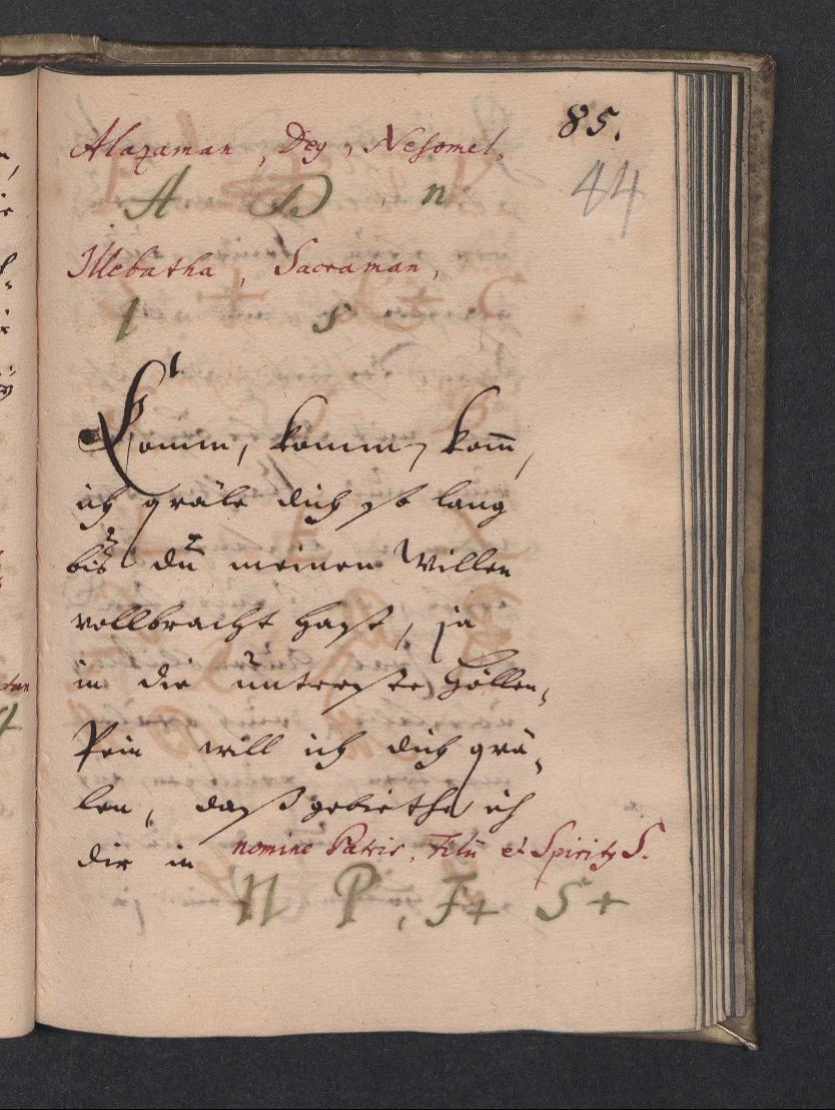 85.
44
Alazaman, Dey, Nesomel,
A D n
Illebatha, Sacraman,
I S
Komm, komm, kom̄,
ich gräle dich so lang
bis du meinen Willen
vollbracht hast, ja
in die unterste Höllen-
Pein will ich dich grä-
len, daß gebiethe ich
dir in nomine Patris, Filii et Spirity S.
N P, F+ S+